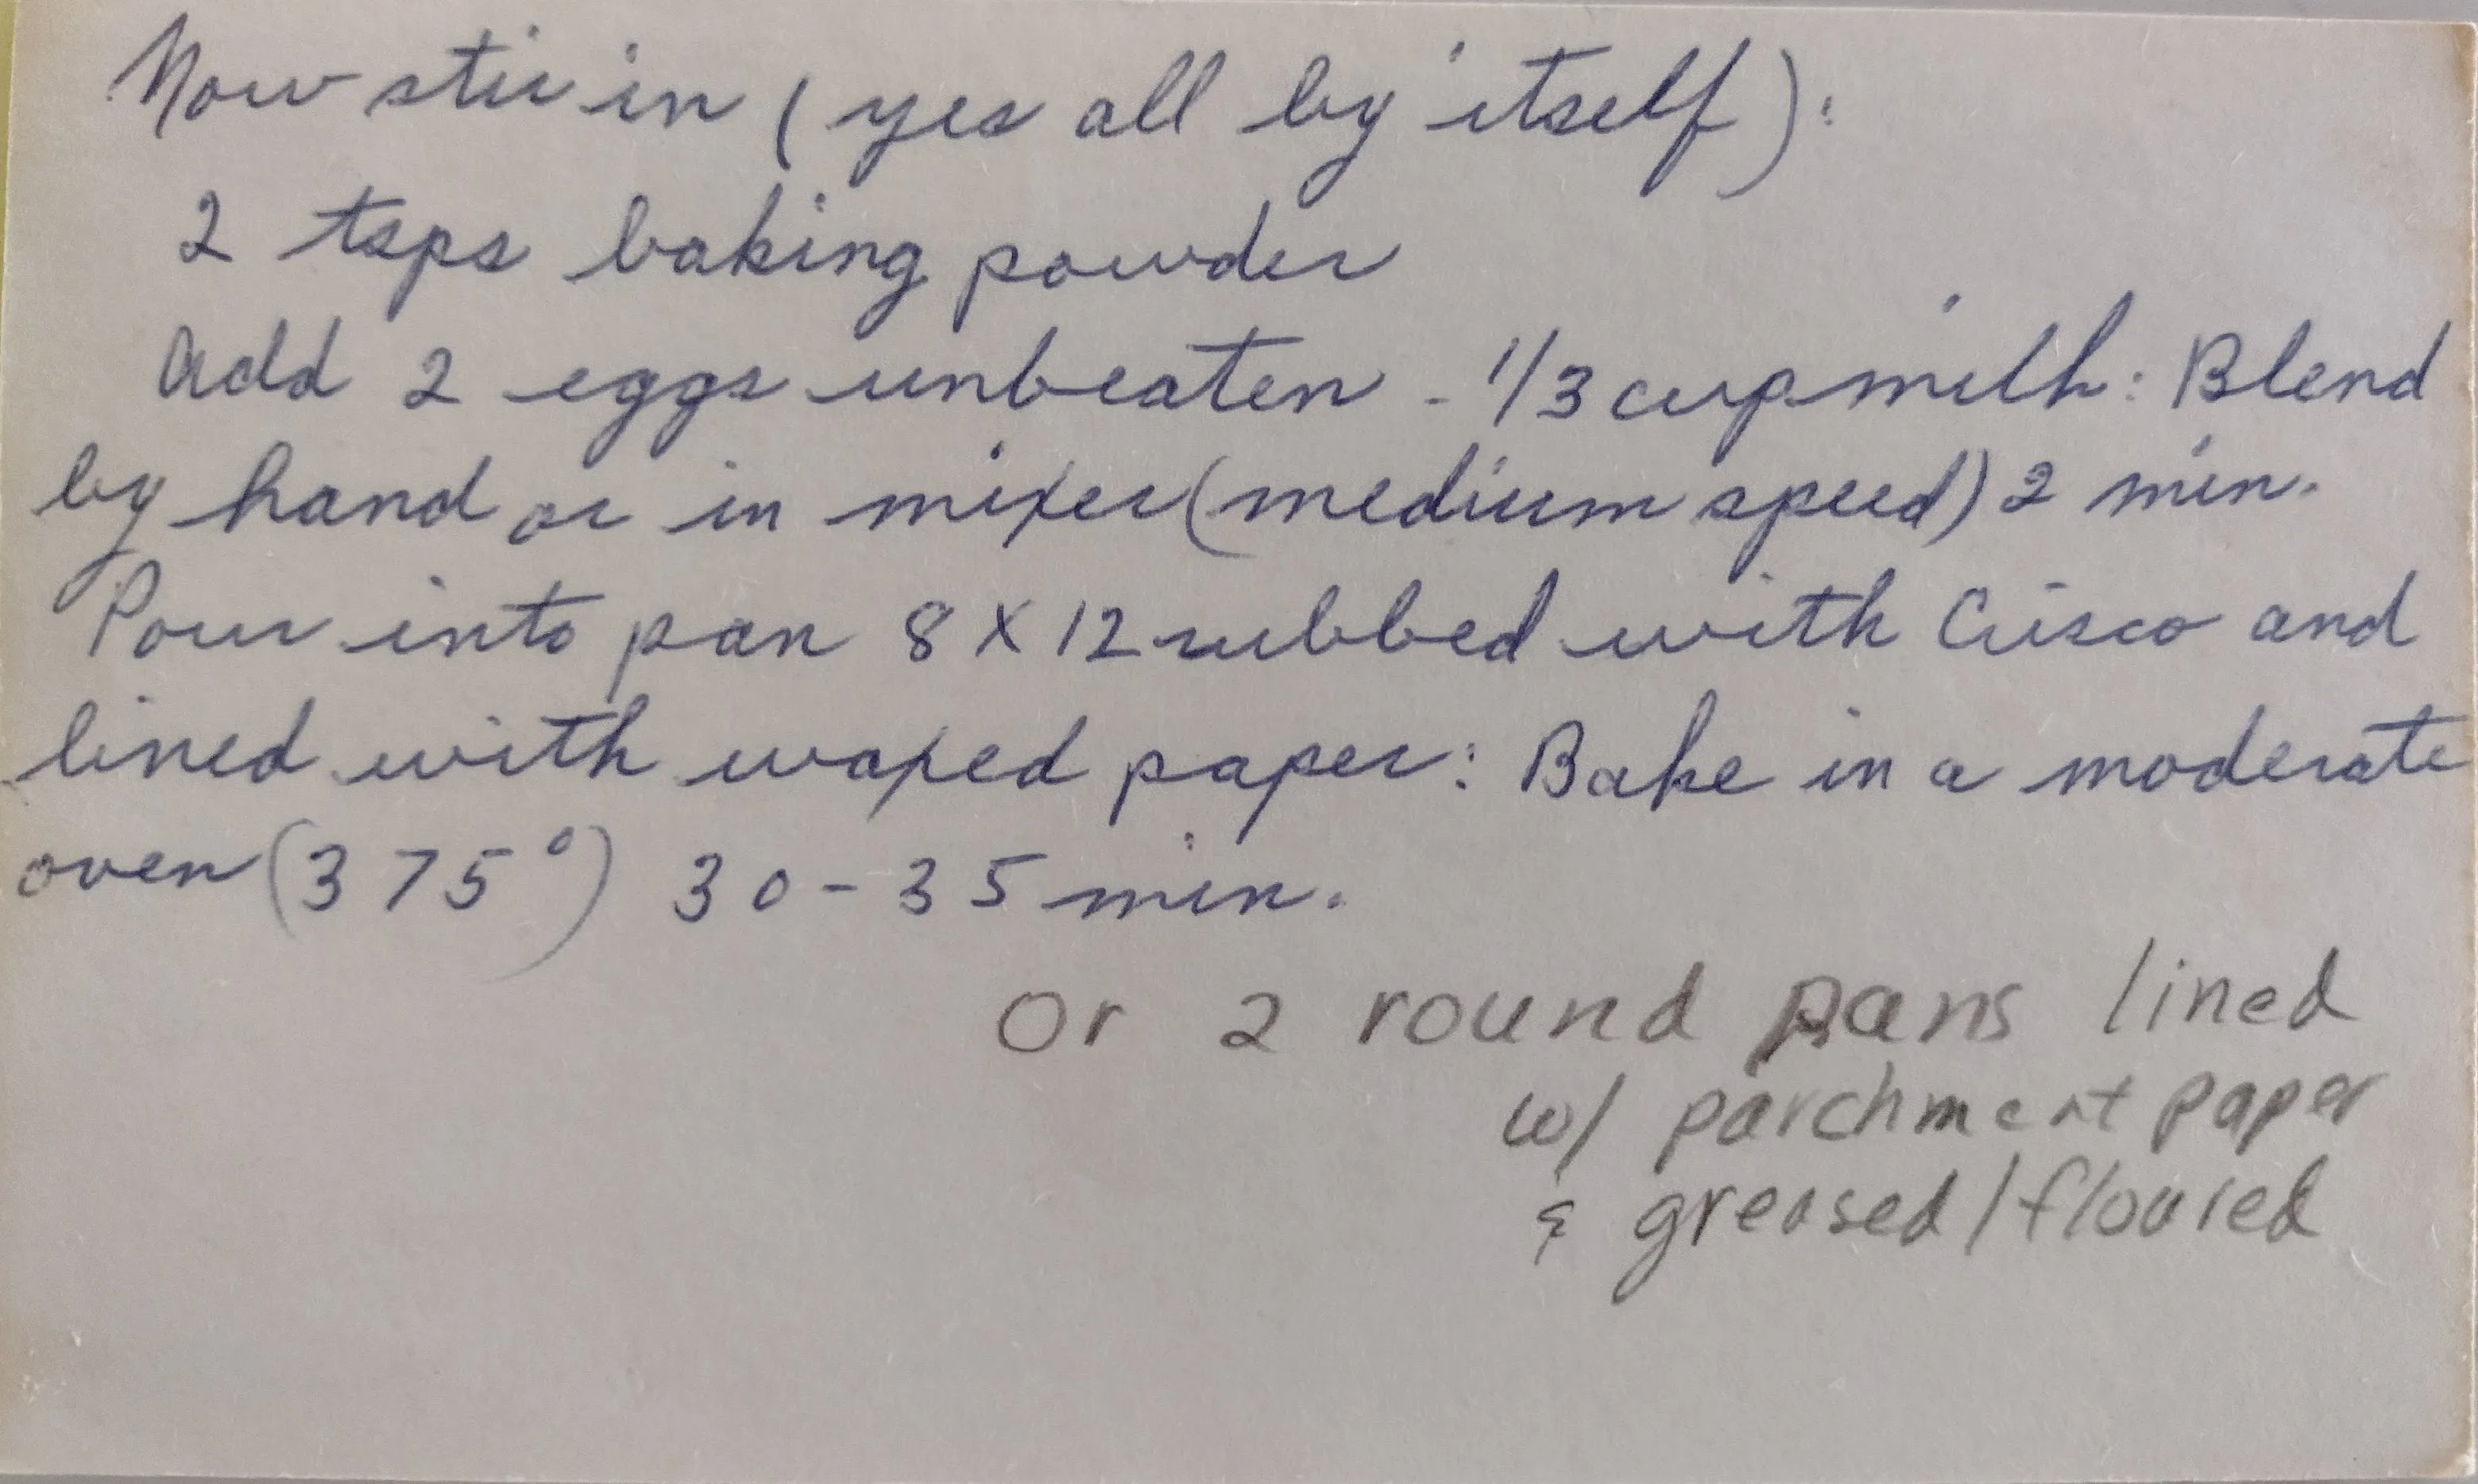 Now stir in (yes all by itself):
2 tsps baking powder
Add 2 eggs unbeaten - 1/3 cup milk: Blend
by hand or in mixer (medium speed) 2 min.
Pour into pan 8 X 12 rubbed with Crisco and
lined with waxed paper: Bake in a moderate
oven (375°) 30-35 min.
Or 2 round pans lined
w/ parchment paper
& greased/floured